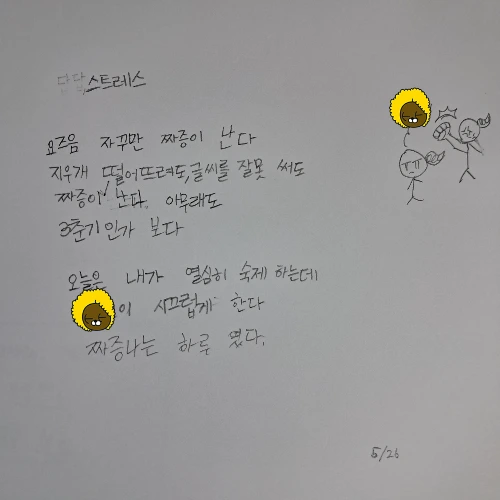 답답 스트레스
요즈음 자꾸만 짜증이 난다
지우개 떨어뜨려도, 글씨를 잘못 써도
짜증이 난다. 아무래도
3춘기인가 보다
오늘은 내가 열심히 숙제 하는데
이 시끄럽게 한다
짜증나는 하루 였다.
ㅠㅠ
5/26